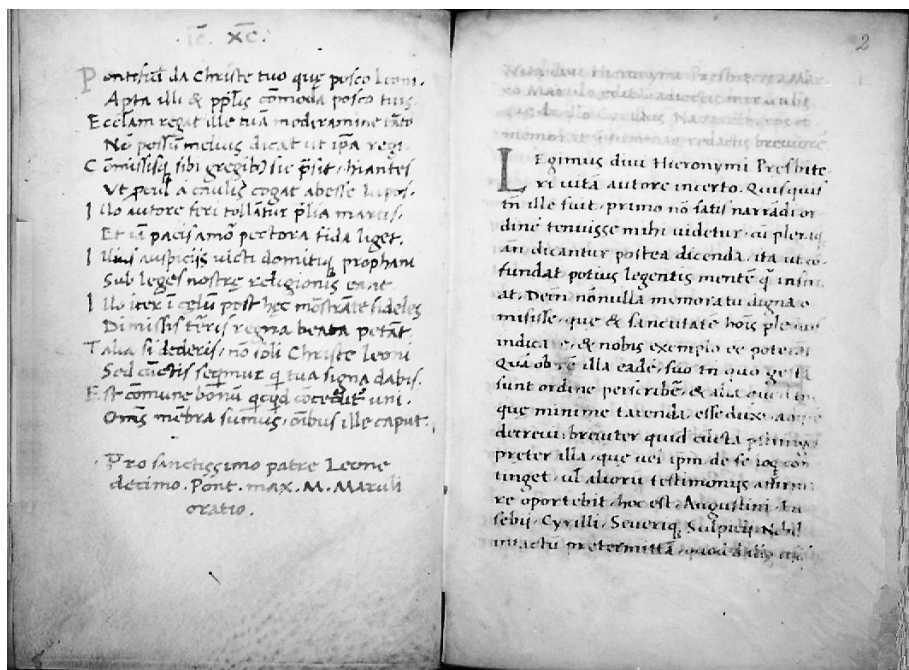 IC. XC.
Pontifici da Christe tuo quę posco Leoni.
Apta illi & pp̄lis cōmoda posco tuis.
Eccl̄am regat ille tuā moderamine tāto
Nō possim melius dicat ut ip̄a regi.
Cōmissisq; sibi gregib; sic p̄sit, hiantes
Ut procul à caulis cogat abesse lupos.
Illo autore feri tollātur p̄lia martis.
Et iā pacis amor pectora fida liget.
Illius auspicijs uicti domitiq; prophani
Sub leges nostrę religionis eant
Illo iter ī cęlū post hęc mōstrāte fideles
Dimissis terris regna beata petāt.
Talia si dederis, nō soli Christe Leoni
Sed cūctis seqimur qi tua signa dabis.
Est cōmune bonū qicqid cōcedit uni.
Om̄s mēbra sumus, oībus ille caput.
Pro sanctissimo patre Leone
decimo. Pont. max. M. Maruli
oratio.
2
Vita diui Hieronymi Presbiteri a Mar
co Marulo edita
LEgimus diui Hieronymi Presbite
ri uitā autore incerto. Quisquis
tn̄ ille fuit, primo nō satis narrādi or
dinē tenuisse mihi uidetur, cū pleraq;
ān dicantur postea dicenda, ita ut cō
fundat potius legentis mentē q̄ insinu
at. Dein nōnulla memoratu digna o
misisse, quę & sanctitatē hoīs
indicare, & nobis exemplo eē poterāt
Quā ob rē illa eadē, suo tn̄ quo gesta
sunt ordine perscribē, & alia
quę minime tacenda esse duxi,
decreui, breuiter quid cūcta
pręter illa, quę uel ip̄m de se loq̄ cōn
tinget, ul̄ aliorū testimonijs affirma
re oportebit, hoc est, Augustini, Eu
sebij, Cyrilli, Seueriq; Sulpicij. Nihil
intactū prętermittā,